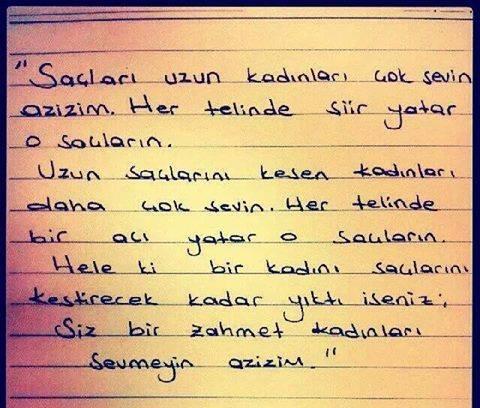 "Saçları uzun kadınları çok sevin
azizim. Her telinde şiir yatar
o saçların.
Uzun saçlarını kesen kadınları
daha çok sevin. Her telinde
bir acı yatar o saçların.
Hele ki bir kadını saçlarını
kestirecek kadar yıktı iseniz;
Siz bir zahmet kadınları
sevmeyin azizim."